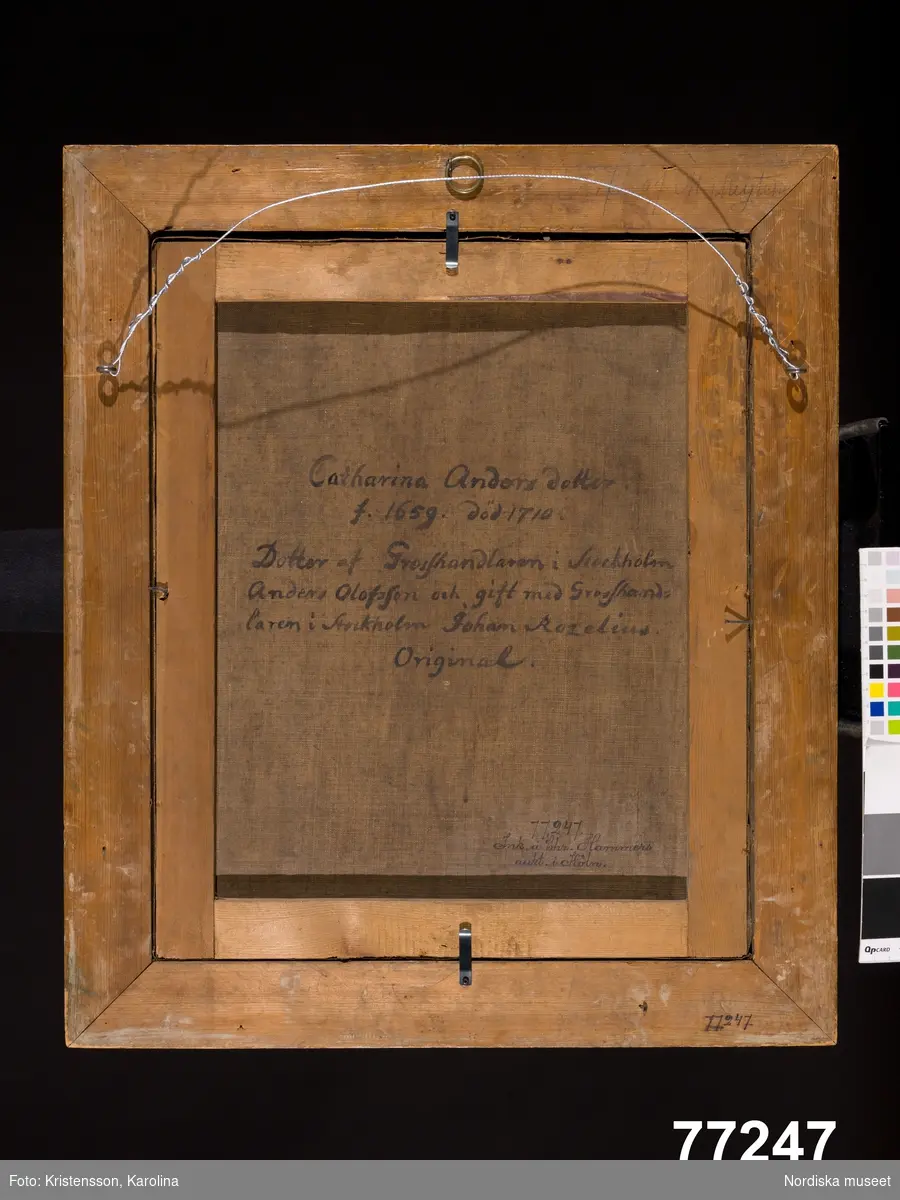 Catharina Anders dotter.
f. 1659. död 1710.
Dotter af Grosshandlaren i Stockholm
Anders Olofsson och gift med Grosshand=
laren i Stockholm Johan Rozelius.
Original.
77247.
Ink. å Chr. Hammers
aukt. i Sthlm.
77.247.
QPCARD
77247
Foto: Kristensson, Karolina
Nordiska museet